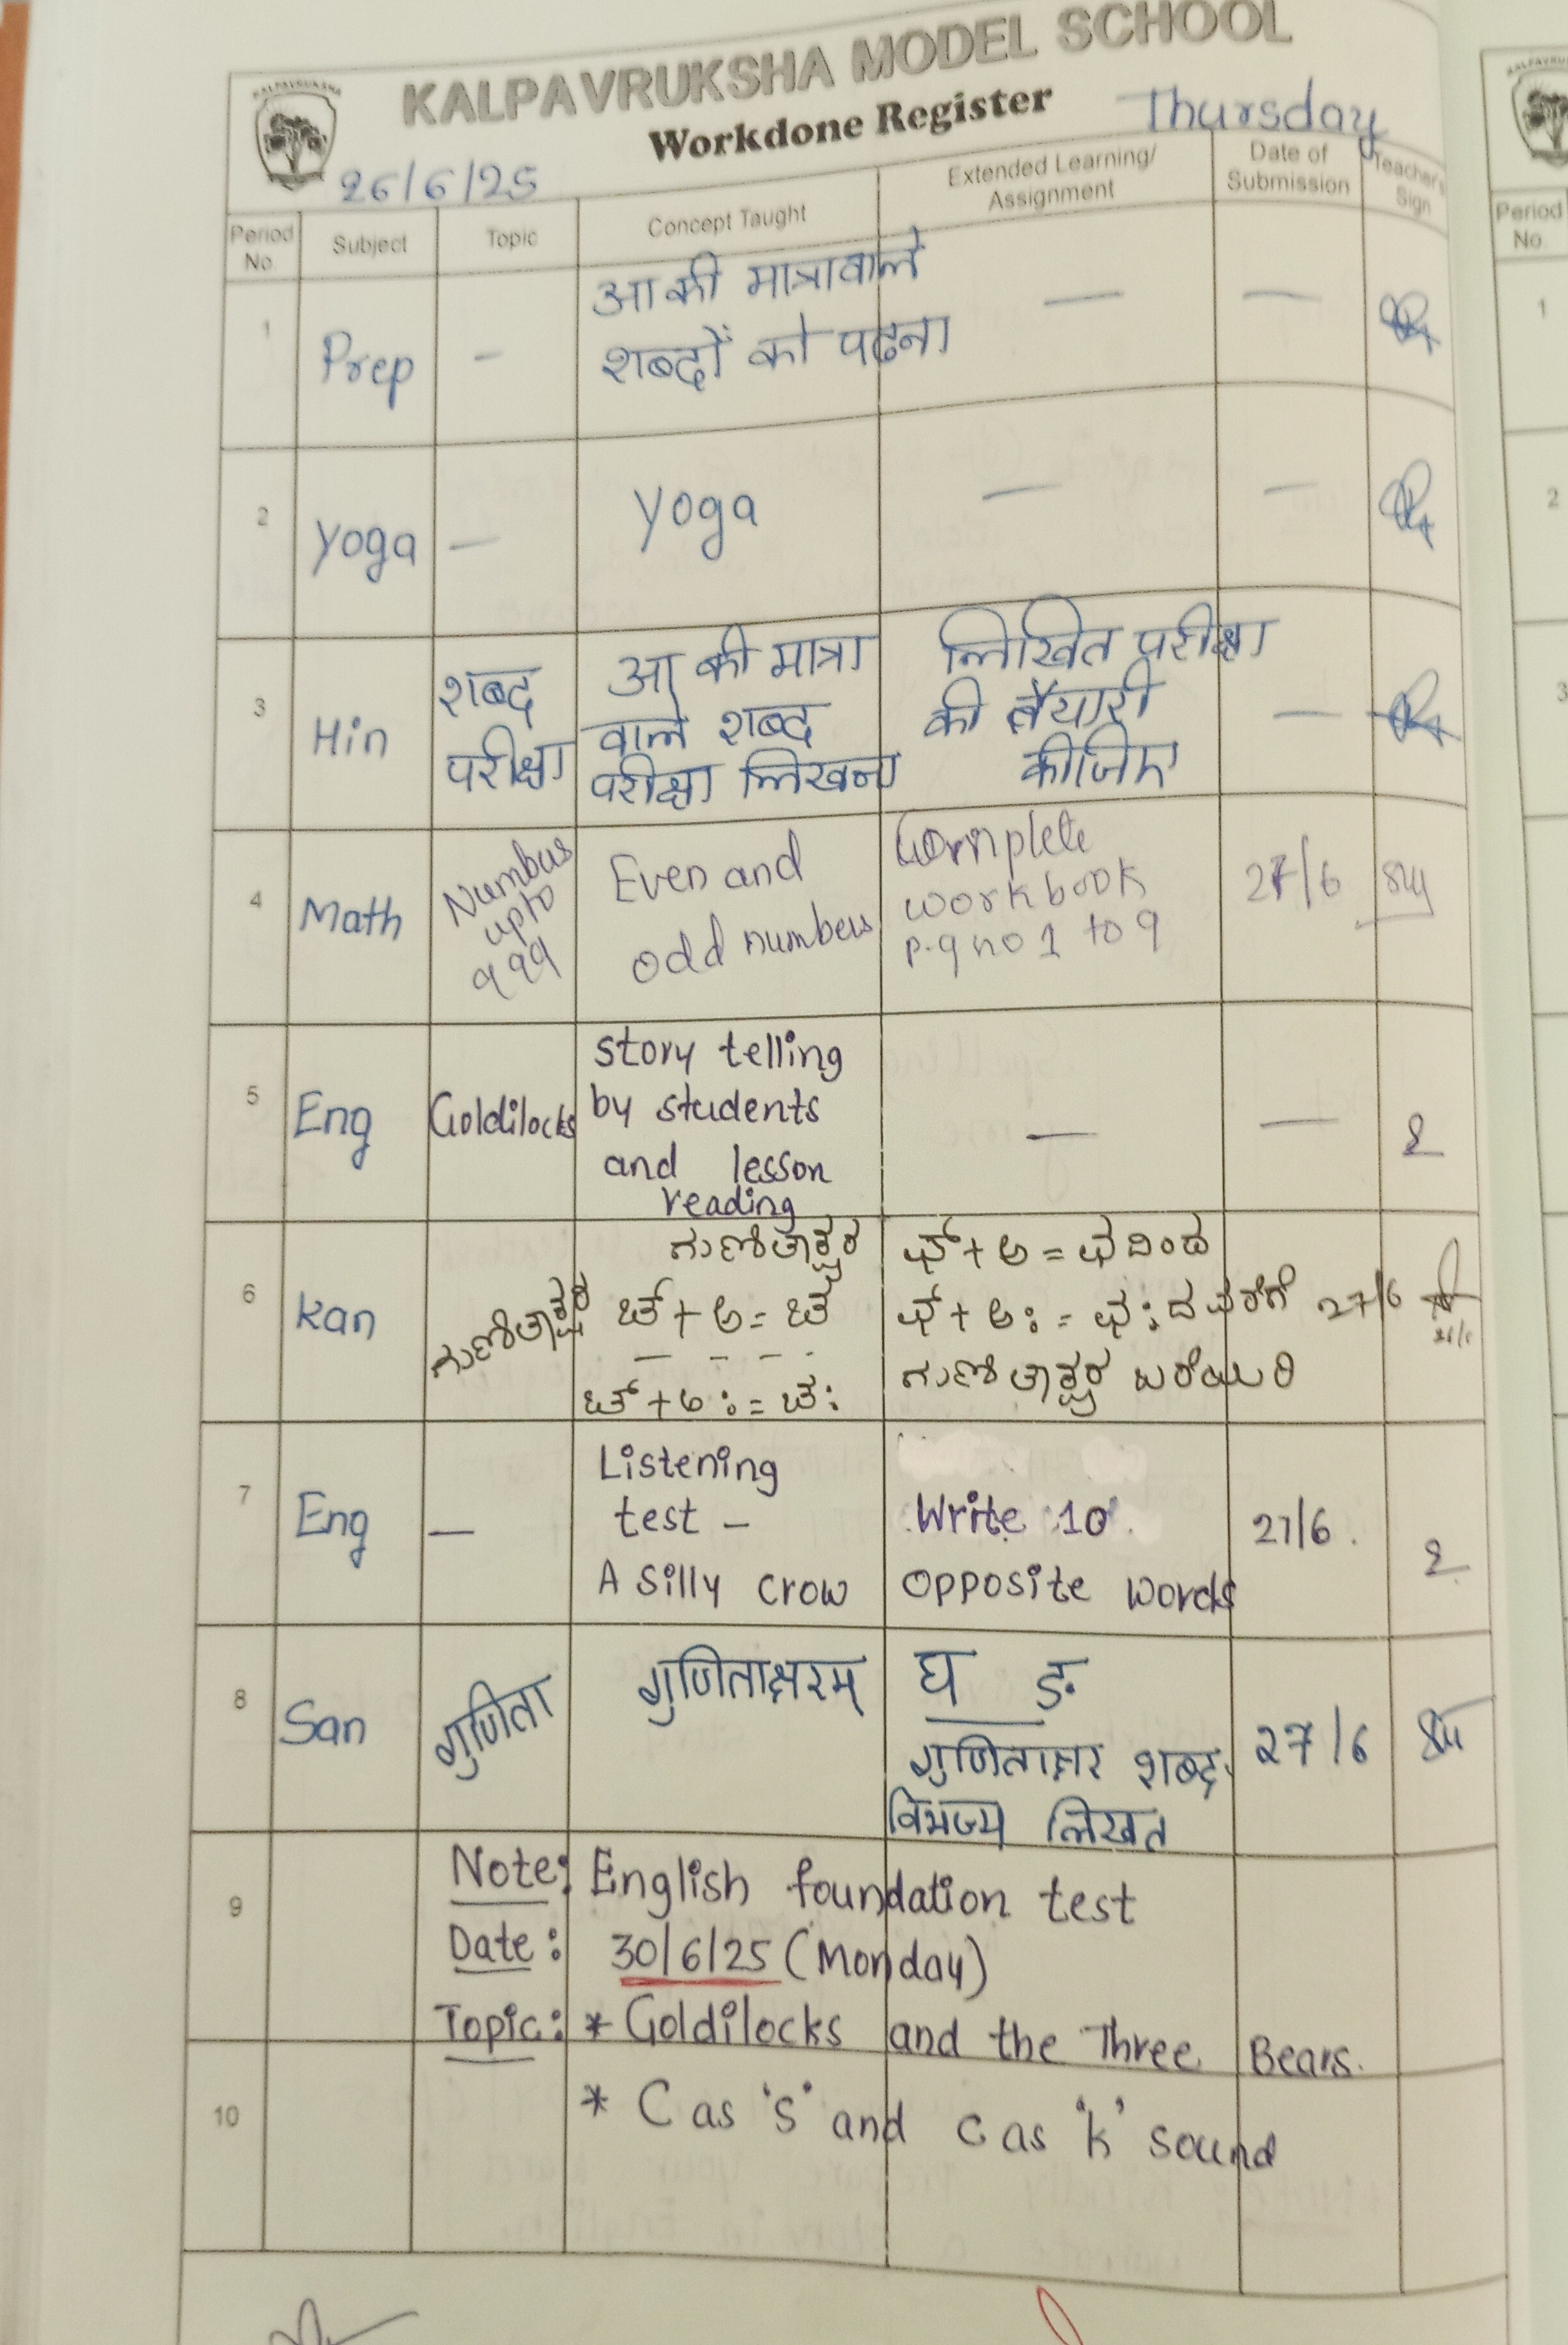 KALPAVRUKSHA
KALPAVRUKSHA MODEL SCHOOL
Workdone Register
Thursday
26/6/25
Period No.
Subject
Topic
Concept Taught
Extended Learning/ Assignment
Date of Submission
Teacher's Sign
1
Prep
-
आ की मात्रावाले
शब्दों को पढना
—
—
2
Yoga
—
Yoga
—
—
3
Hin
शब्द
परीक्षा
आ की मात्रा
वाले शब्द
परीक्षा लिखना
लिखित परीक्षा
की तैयारी
कीजिए
—
4
Math
Numbers
upto
999
Even and
odd numbers
Complete
workbook
p.g no 1 to 9
27/6
5
Eng
Goldilocks
Story telling
by students
and lesson
reading
—
—
6
Kan
ಗುಣಿತಾಕ್ಷರ
ಗುಣಿತಾಕ್ಷರ
ಚ್ + ಅ = ಚ
- - - -
ಚ್ + ಅಃ = ಚಃ
ಛ್ + ಅ = ಛ ದಿಂದ
ಛ್ + ಅಃ = ಛಃ ದ ವರೆಗೆ
ಗುಣಿತಾಕ್ಷರ ಬರೆಯಿರಿ
27/6
7
Eng
—
Listening
test -
A Silly Crow
Write 10
opposite words
27/6.
8
San
गुणिता
गुणिताक्षरम्
घ ङ
गुणिताक्षर शब्द
विभज्य लिखत
27/6
9
Note: English foundation test
Date: 30/6/25 (Monday)
Topic: * Goldilocks and the Three Bears.
10
* C as 's' and c as 'k' sound
Period No.
1
2
3